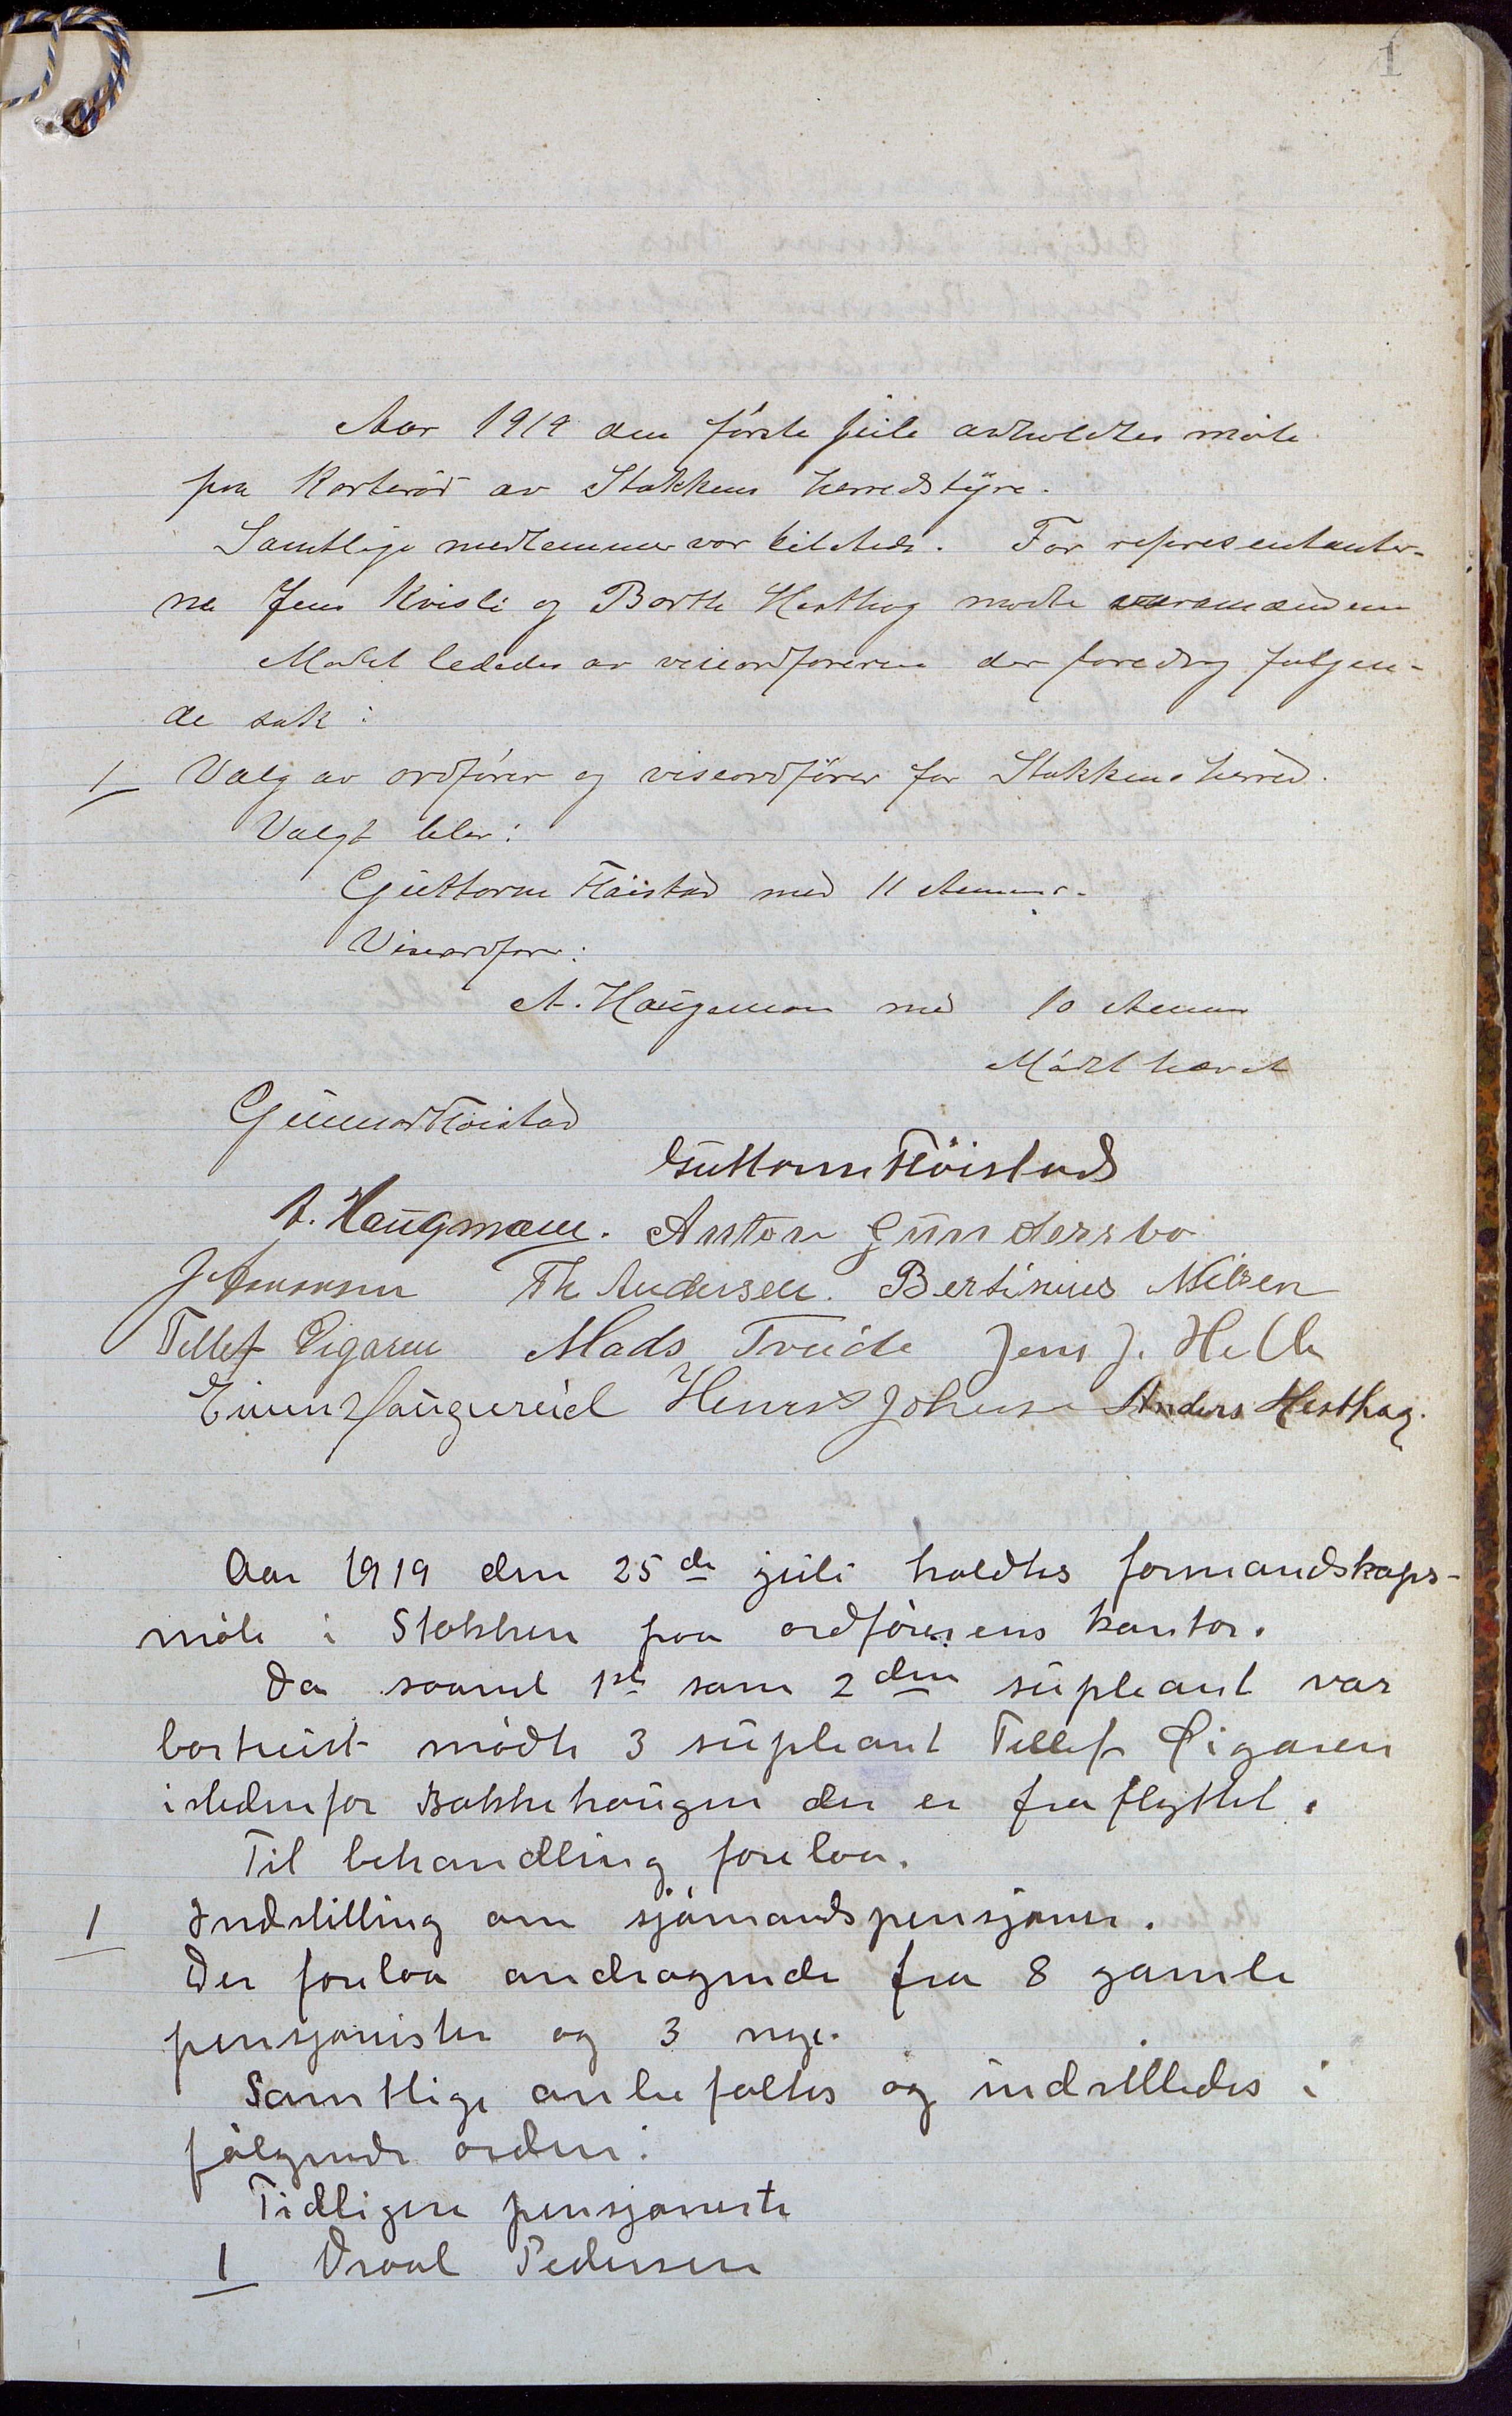 1
Aar 1919 den første juli avholdtes møte
paa Kortørød av Stokken herredstyre.
Samtlige medlemmer var tilstede. For representanter-
ne Jens Kvisli og Barth Hesthag mødte varamændene
Mødet lededes av viseordføreren der foredrog følgen-
de sak:
1 Valg av ordfører og viseordfører for Stokken herred.
Valgt blev:
Guttorm Fløistad med 11 stemmer.
Viseordfører:
A. Haugmann med 10 stemmer
Mødet hævet
Gunnar Fløistad
Guttorm Fløistad
A. Haugmann. Anton Gundersbo
J Th Andersen. Bertinius Nilsen
Tellef Øigaren Mads Trude Jens J. Helle
Einar Haugereid Henrik Johnsen Anders Hesthag.
Aar 1919 den 25de juli holdtes formandskaps-
møte i Stokken paa ordførerens kontor.
Da saavel 1ste som 2den supleant var
bortreist mødte 3 supleant Tellef Øigaren
istedenfor Bakkehaugen der er fraflyttet.
Til behandling forelaa.
1 Indstilling om sjømandspensjoner.
Der forelaa andragende fra 8 gamle
pensjonister og 3 nye.
Samtlige anbefaltes og indstilledes i
følgende orden:
Tidligere pensjonister
1 Osvald Pedersen